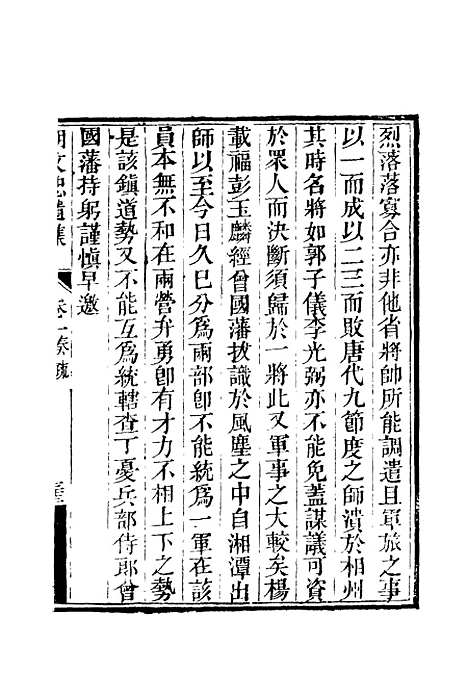 烈落落寡合亦非他省將帥所能調遣且軍旅之事
以一而成以二三而敗唐代九節度之師潰於相州
其時名將如郭子儀李光弼亦不能免蓋謀議可資
於眾人而決斷須歸於一將此又軍事之大較矣楊
載福彭玉麟經曾國藩拔識於風塵之中自湘潭出
師以至今日久已分為兩部卽不能統為一軍在該
員本無不和在兩營弁勇卽有才力不相上下之勢
是該鎮道勢又不能互為統轄查丁憂兵部侍郎曾
國藩持躬謹慎早邀
文忠遺集
卷一奏疏